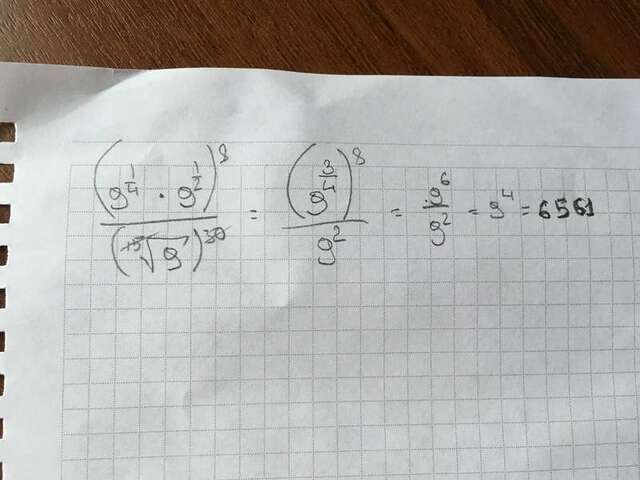 (9^(1/4) · 9^(1/2))^8 / (¹⁵√9)^30 = (9^(3/4))^8 / 9^2 = 9^6 / 9^2 = 9^4 = 6561